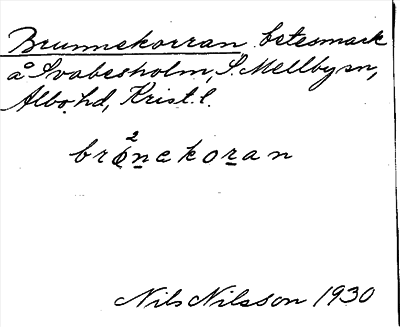 Brunnekorran betesmark
å Svabesholm, S. Mellby sn,
Albo hd, Krist. l.
brønekoran
Nils Nilsson 1930